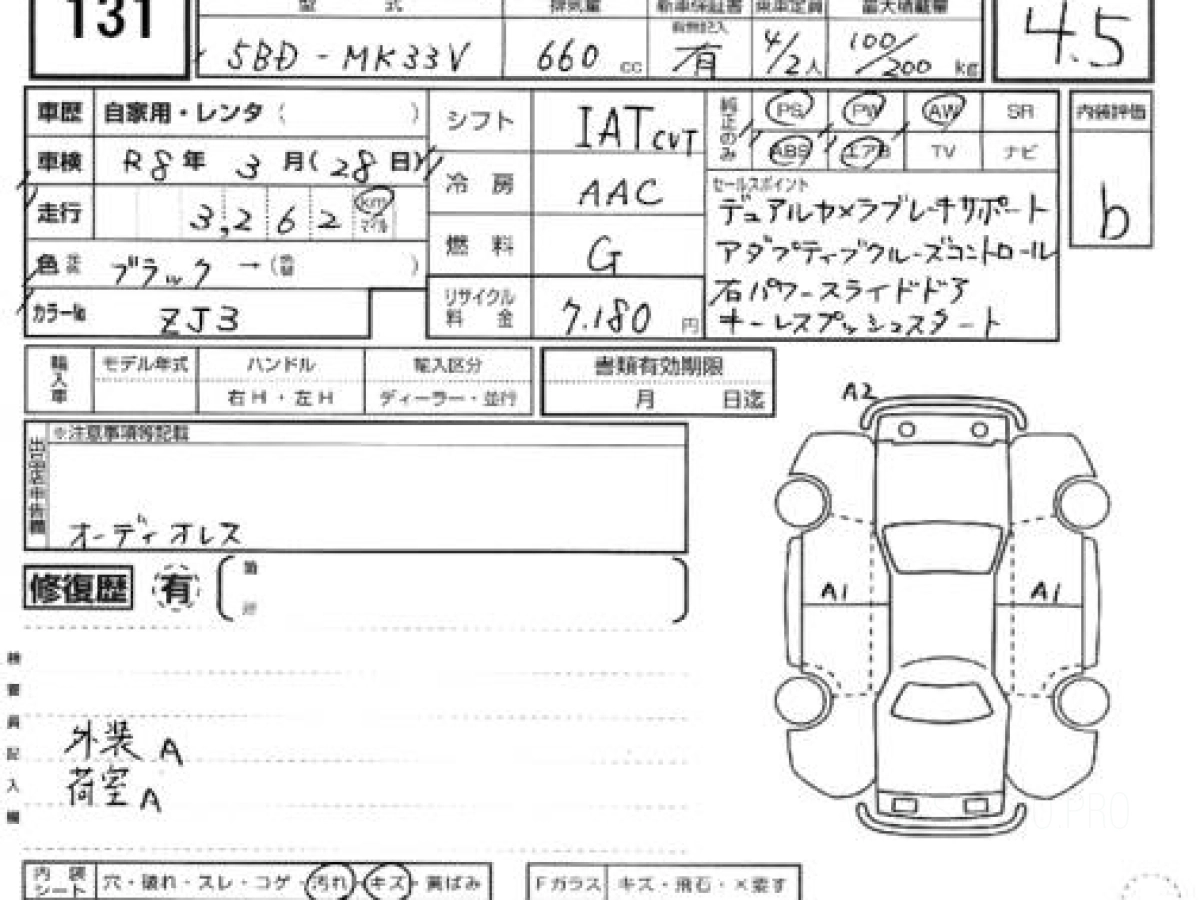 131
型式 排気量 新車保証書 乗車定員 最大積載量
有無記入
5BD-MK33V 660 cc 有 4/2人 100/200 kg 4.5
車歴 自家用・レンタ( )
車検 R8年 3月(28日)
走行 3,262 km マイル
色 ブラック →( )
カラー№ ZJ3
シフト IAT CVT
冷房 AAC
燃料 G
リサイクル料金 7.180 円
純正のみ PS PW AW SR
ABS エアB TV ナビ
セールスポイント
デュアルカメラブレーキサポート
アダプティブクルーズコントロール
右パワースライドドア
キーレスプッシュスタート
内装評価
b
輸入車 モデル年式 ハンドル 輸入区分
右H・左H ディーラー・並行
書類有効期限
月 日迄
出品店申告欄 ※注意事項等記載
オーディオレス
修復歴 有
検査員記入欄
外装 A
荷室 A
A2
A1 A1
内装シート 穴・破れ・スレ・コゲ・汚れ・キズ・黄ばみ
Fガラス キズ・飛石・×要す